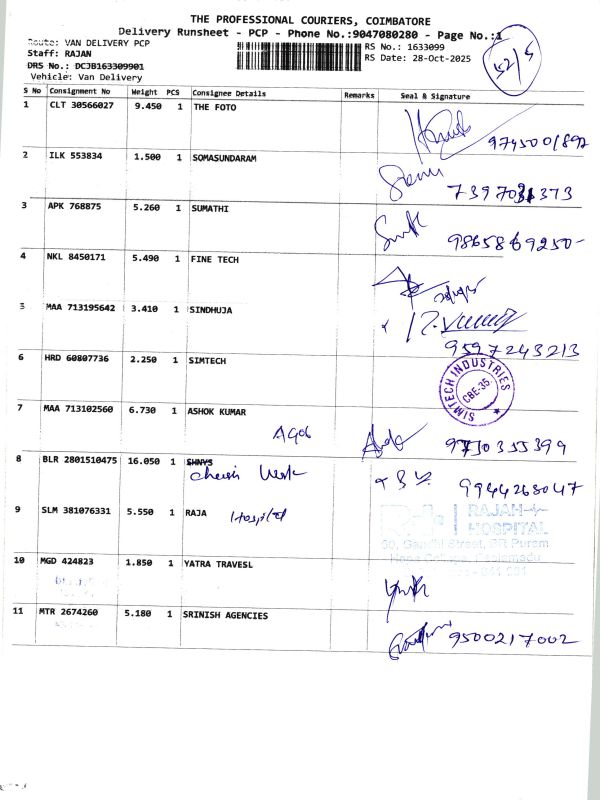 THE PROFESSIONAL COURIERS, COIMBATORE
Delivery Runsheet - PCP - Phone No.:9047080280 - Page No.:1
Route: VAN DELIVERY PCP
RS No.: 1633099
52/5
Staff: RAJAN
RS Date: 28-Oct-2025
DRS No.: DCJB163309901
Vehicle: Van Delivery
S No Consignment No Weight PCS Consignee Details Remarks Seal & Signature
1 CLT 30566027 9.450 1 THE FOTO
9745001892
2 ILK 553834 1.500 1 SOMASUNDARAM
3 APK 768875 5.260 1 SUMATHI
9865869250-
4 NKL 8450171 5.490 1 FINE TECH
5 MAA 713195642 3.410 1 SINDHUJA
9597243213
6 HRD 60807736 2.250 1 SIMTECH
SIMTECH INDUSTRIES
CBE-35
7 MAA 713102560 6.730 1 ASHOK KUMAR
8 BLR 2801510475 16.050 1 SHNYS
9944268047
9 SLM 381076331 5.550 1 RAJA Hospital
RAJAH
HOSPITAL
10 MGD 424823 1.850 1 YATRA TRAVESL
11 MTR 2674260 5.180 1 SRINISH AGENCIES
9500217002